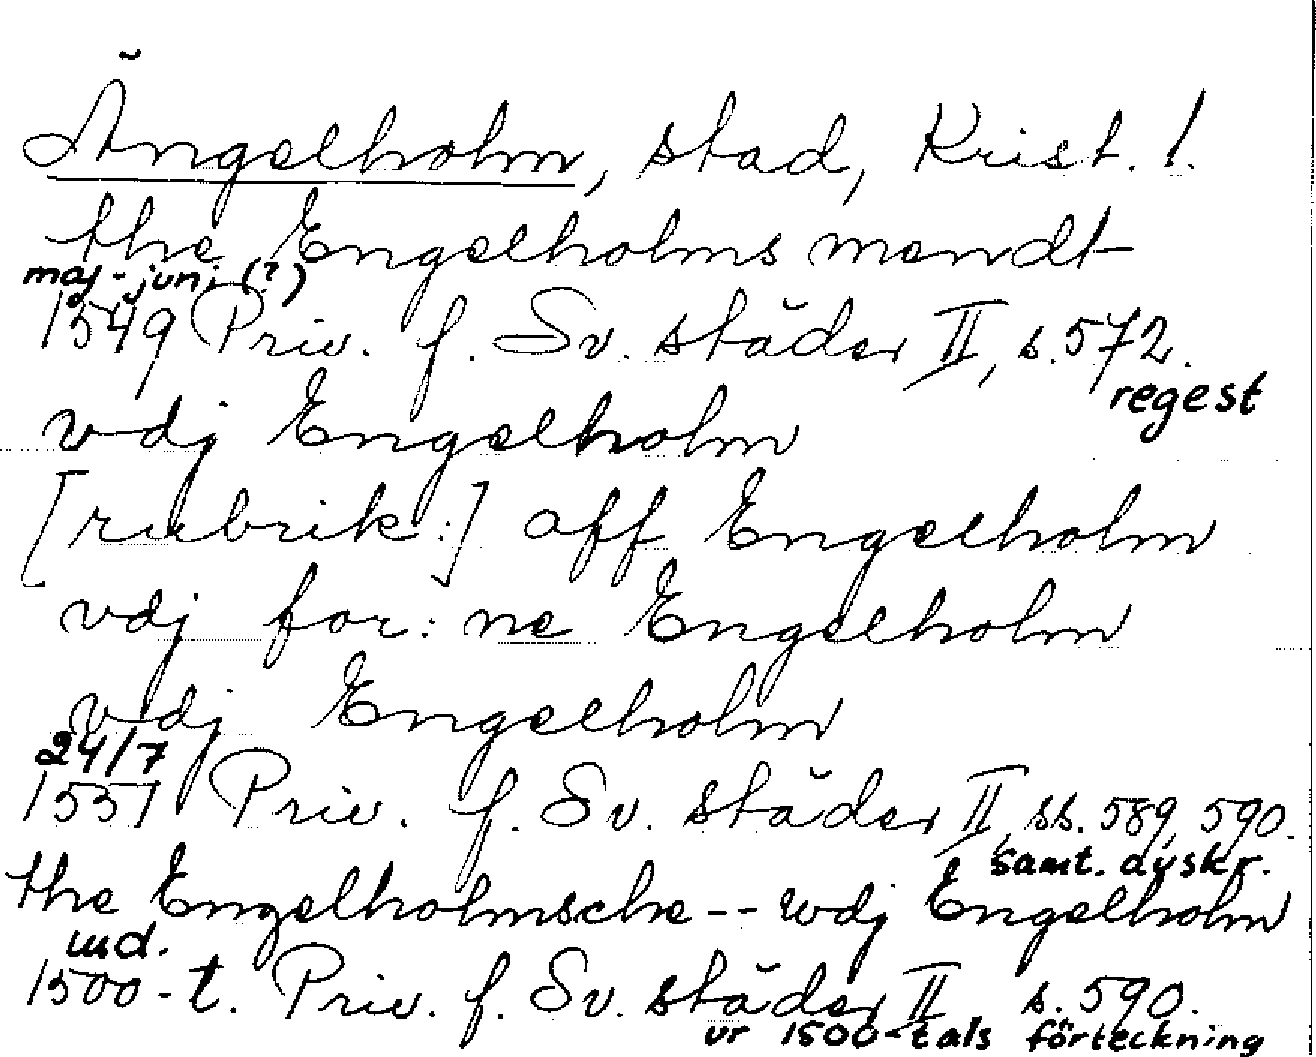 Ängelholm, stad, Krist. l.
the Engelholms mendt
maj-juni (?)
1549 Priv. f. Sv. städer II, s. 572.
regest
vdj Engelholm
[rubrik:] aff Engelholm
vdj for:ne Engelholm
vdj Engelholm
24/7
1551 Priv. f. Sv. städer II, ss. 589, 590.
samt. avskr.
the Engelholmsche -- wdj Engelholm
und.
1500-t. Priv. f. Sv. städer II s. 590.
ur 1500-tals förteckning